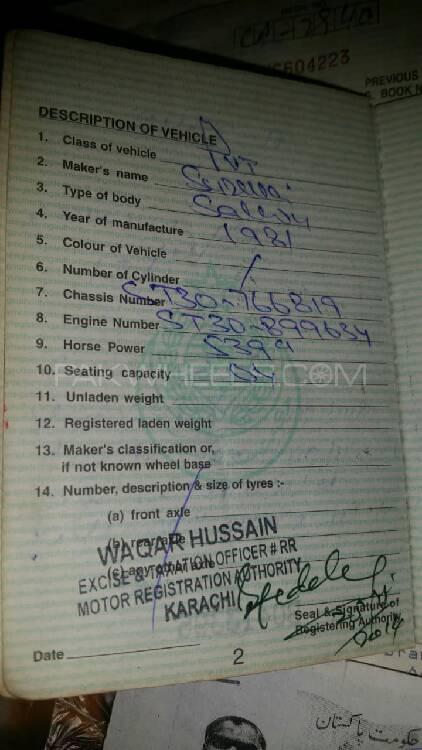 CW-1284
604223
PREVIOUS
BOOK N
DESCRIPTION OF VEHICLE
1. Class of vehicle
2. Maker's name Suzuki
3. Type of body Saloon
4. Year of manufacture 1981
5. Colour of Vehicle
6. Number of Cylinder
7. Chassis Number ST30-766819
8. Engine Number ST30-899634
9. Horse Power 539
10. Seating capacity
PAKWHEELS.COM
11. Unladen weight
12. Registered laden weight
13. Maker's classification or,
if not known wheel base
14. Number, description & size of tyres :-
(a) front axle
(b) rear axle
(c) any other axle
WAQAR HUSSAIN
EXCISE & TAXATION OFFICER # RR
MOTOR REGISTRATION AUTHORITY
KARACHI
Seal & Signature of
Registering Authority
Date
2
حکومت پاکستان